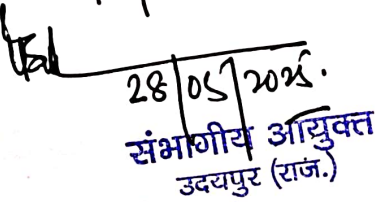 28/05/2025.
संभागीय आयुक्त
उदयपुर (राज.)